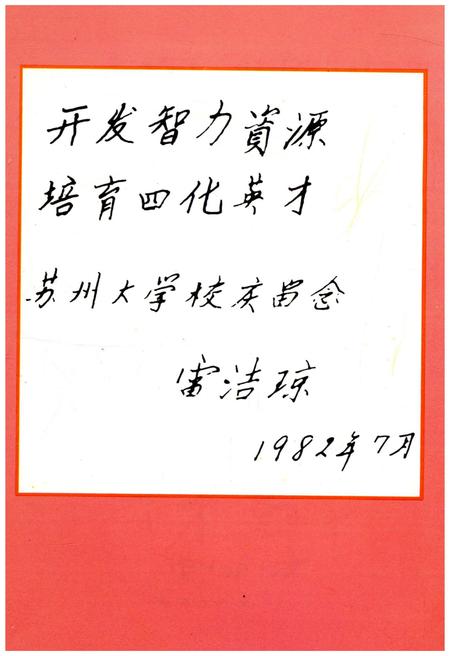 开发智力資源
培育四化英才
苏州大学校庆留念
雷洁琼
1982年7月